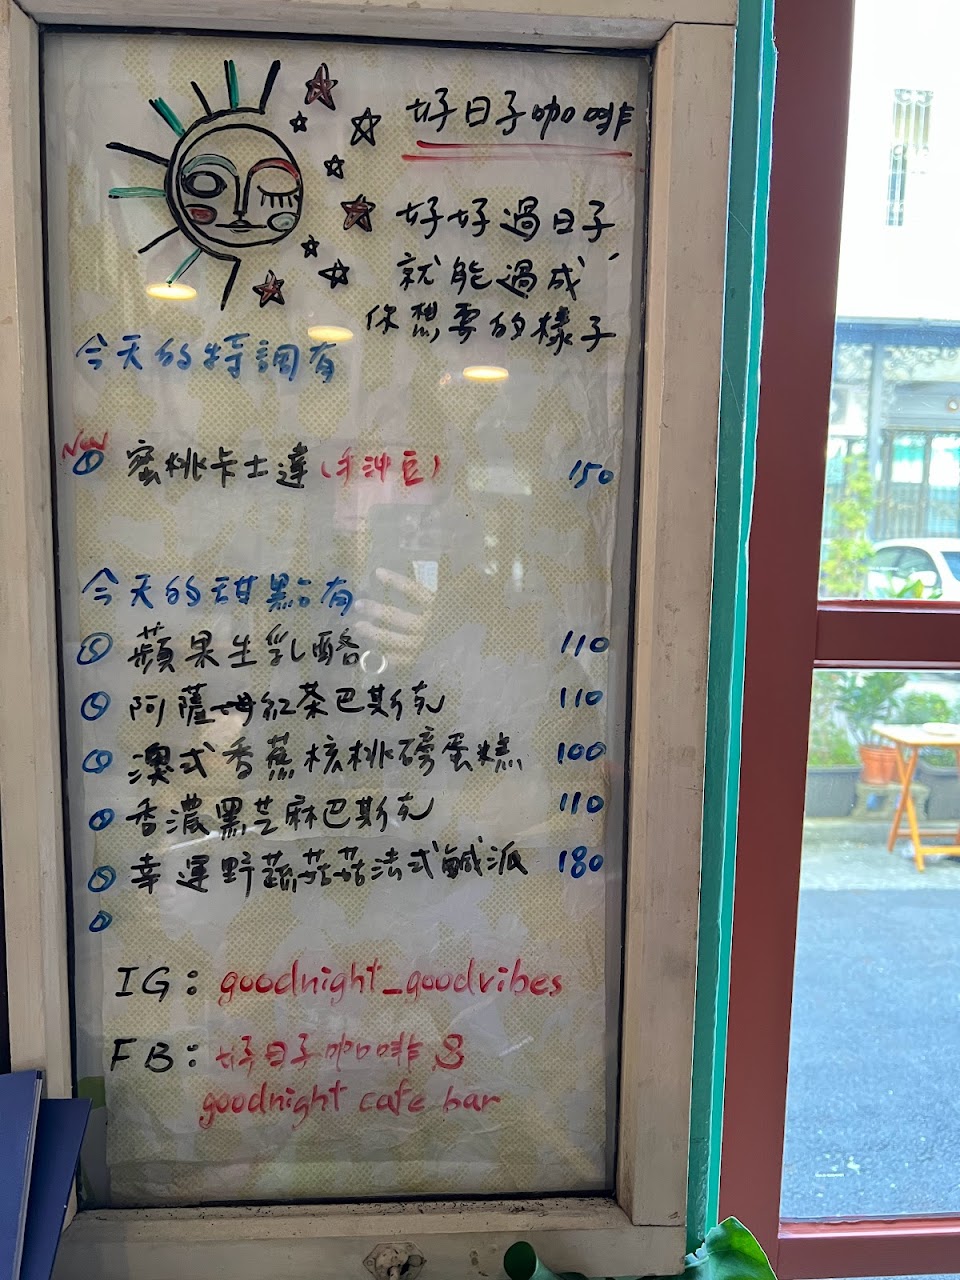 好日子咖啡
好好過日子
就能過成
你想要的樣子
今天的特調有
New
蜜桃卡士達(手沖豆) 150
今天的甜點有
蘋果生乳酪 110
阿薩姆紅茶巴斯克 110
澳式香蕉核桃磅蛋糕 100
香濃黑芝麻巴斯克 110
幸運野蔬菇菇法式鹹派 180
IG: goodnight_goodvibes
FB: 好日子咖啡&
goodnight cafe bar